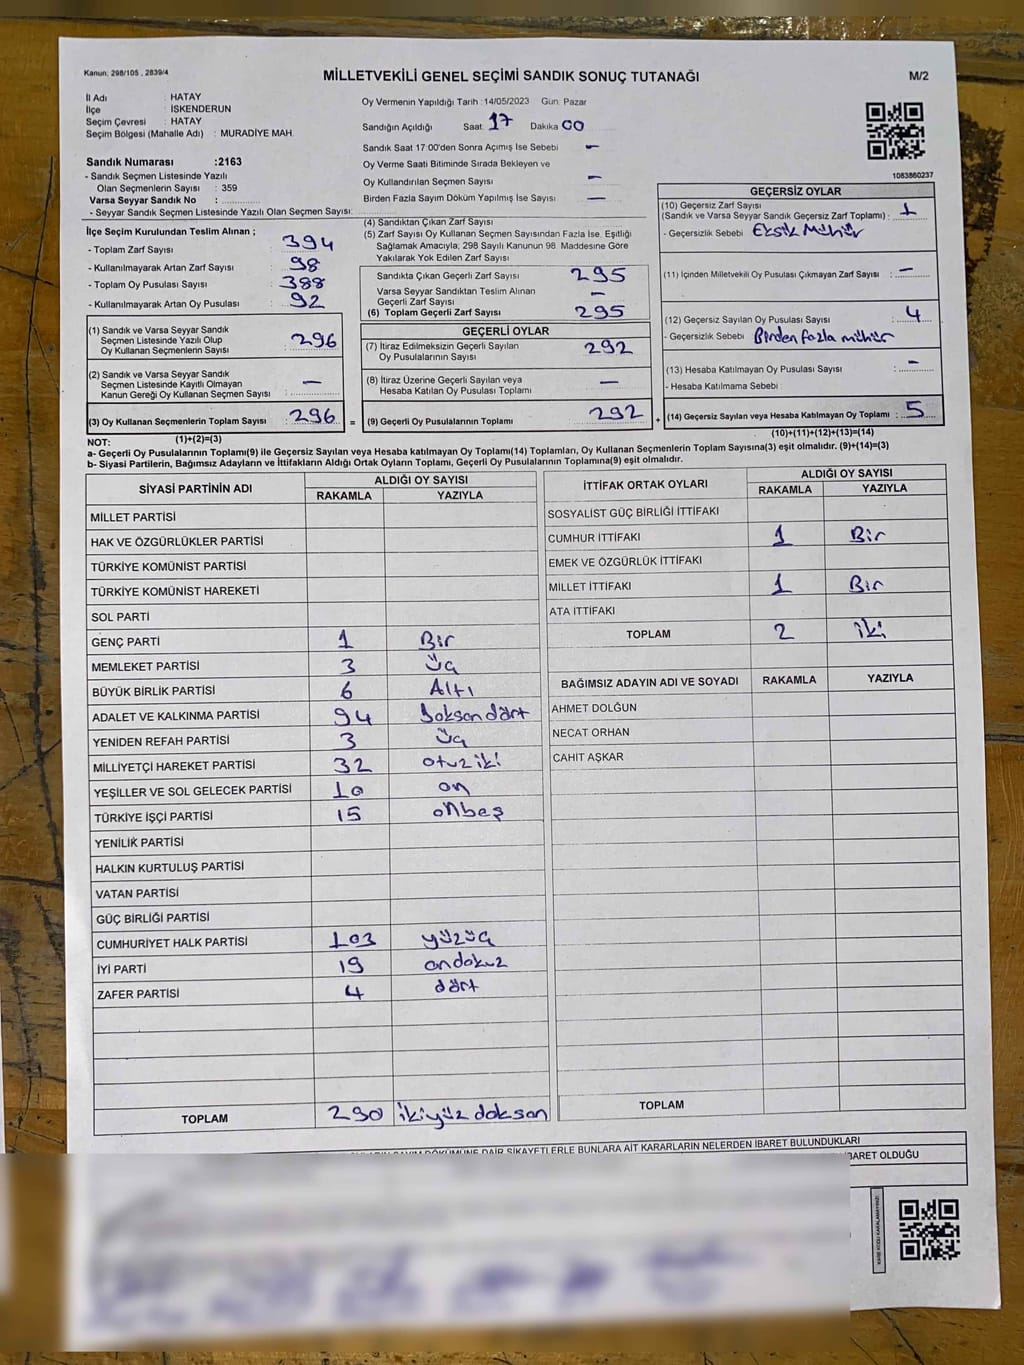 Kanun: 298/105 , 2839/4
MİLLETVEKİLİ GENEL SEÇİMİ SANDIK SONUÇ TUTANAĞI
M/2
İl Adı : HATAY
İlçe : İSKENDERUN
Seçim Çevresi : HATAY
Seçim Bölgesi (Mahalle Adı) : MURADİYE MAH.
Sandık Numarası :2163
- Sandık Seçmen Listesinde Yazılı
Olan Seçmenlerin Sayısı : 359
Varsa Seyyar Sandık No :
- Seyyar Sandık Seçmen Listesinde Yazılı Olan Seçmen Sayısı:
Oy Vermenin Yapıldığı Tarih : 14/05/2023 Gün: Pazar
Sandığın Açıldığı Saat 17 Dakika 00
Sandık Saat 17:00'den Sonra Açımış İse Sebebi —
Oy Verme Saati Bitiminde Sırada Bekleyen ve
Oy Kullandırılan Seçmen Sayısı —
Birden Fazla Sayım Döküm Yapılmış İse Sayısı —
1083860237
İlçe Seçim Kurulundan Teslim Alınan ;
- Toplam Zarf Sayısı 394
- Kullanılmayarak Artan Zarf Sayısı 98
- Toplam Oy Pusulası Sayısı 388
- Kullanılmayarak Artan Oy Pusulası 92
(1) Sandık ve Varsa Seyyar Sandık
Seçmen Listesinde Yazılı Olup
Oy Kullanan Seçmenlerin Sayısı 296
(2) Sandık ve Varsa Seyyar Sandık
Seçmen Listesinde Kayıtlı Olmayan
Kanun Gereği Oy Kullanan Seçmen Sayısı —
(3) Oy Kullanan Seçmenlerin Toplam Sayısı 296 =
(1)+(2)=(3)
(4) Sandıktan Çıkan Zarf Sayısı
(5) Zarf Sayısı Oy Kullanan Seçmen Sayısından Fazla İse, Eşitliği
Sağlamak Amacıyla; 298 Sayılı Kanunun 98. Maddesine Göre
Yakılarak Yok Edilen Zarf Sayısı
Sandıkta Çıkan Geçerli Zarf Sayısı 295
Varsa Seyyar Sandıktan Teslim Alınan
Geçerli Zarf Sayısı —
(6) Toplam Geçerli Zarf Sayısı 295
GEÇERLİ OYLAR
(7) İtiraz Edilmeksizin Geçerli Sayılan
Oy Pusulalarının Sayısı 292
(8) İtiraz Üzerine Geçerli Sayılan veya
Hesaba Katılan Oy Pusulası Toplamı —
(9) Geçerli Oy Pusulalarının Toplamı 292 +
GEÇERSİZ OYLAR
(10) Geçersiz Zarf Sayısı
(Sandık ve Varsa Seyyar Sandık Geçersiz Zarf Toplamı) : 1
- Geçersizlik Sebebi Eksik Mühür
(11) İçinden Milletvekili Oy Pusulası Çıkmayan Zarf Sayısı : —
(12) Geçersiz Sayılan Oy Pusulası Sayısı : 4
- Geçersizlik Sebebi Birden fazla mühür
(13) Hesaba Katılmayan Oy Pusulası Sayısı : —
- Hesaba Katılmama Sebebi :
(14) Geçersiz Sayılan veya Hesaba Katılmayan Oy Toplamı : 5
(10)+(11)+(12)+(13)=(14)
NOT:
a- Geçerli Oy Pusulalarının Toplamı(9) ile Geçersiz Sayılan veya Hesaba katılmayan Oy Toplamı(14) Toplamları, Oy Kullanan Seçmenlerin Toplam Sayısına(3) eşit olmalıdır. (9)+(14)=(3)
b- Siyasi Partilerin, Bağımsız Adayların ve İttifakların Aldığı Ortak Oyların Toplamı, Geçerli Oy Pusulalarının Toplamına(9) eşit olmalıdır.
SİYASİ PARTİNİN ADI
ALDIĞI OY SAYISI
RAKAMLA YAZIYLA
MİLLET PARTİSİ
HAK VE ÖZGÜRLÜKLER PARTİSİ
TÜRKİYE KOMÜNİST PARTİSİ
TÜRKİYE KOMÜNİST HAREKETİ
SOL PARTİ
GENÇ PARTİ 1 Bir
MEMLEKET PARTİSİ 3 üç
BÜYÜK BİRLİK PARTİSİ 6 Altı
ADALET VE KALKINMA PARTİSİ 94 Doksan dört
YENİDEN REFAH PARTİSİ 3 üç
MİLLİYETÇİ HAREKET PARTİSİ 32 otuz iki
YEŞİLLER VE SOL GELECEK PARTİSİ 10 on
TÜRKİYE İŞÇİ PARTİSİ 15 onbeş
YENİLİK PARTİSİ
HALKIN KURTULUŞ PARTİSİ
VATAN PARTİSİ
GÜÇ BİRLİĞİ PARTİSİ
CUMHURİYET HALK PARTİSİ 103 yüzüç
İYİ PARTİ 19 ondokuz
ZAFER PARTİSİ 4 dört
TOPLAM 290 ikiyüz doksan
İTTİFAK ORTAK OYLARI
ALDIĞI OY SAYISI
RAKAMLA YAZIYLA
SOSYALİST GÜÇ BİRLİĞİ İTTİFAKI
CUMHUR İTTİFAKI 1 Bir
EMEK VE ÖZGÜRLÜK İTTİFAKI
MİLLET İTTİFAKI 1 Bir
ATA İTTİFAKI
TOPLAM 2 iki
BAĞIMSIZ ADAYIN ADI VE SOYADI RAKAMLA YAZIYLA
AHMET DOLĞUN
NECAT ORHAN
CAHİT AŞKAR
TOPLAM
DÖKÜMÜNE DAİR ŞİKAYETLERLE BUNLARA AİT KARARLARIN NELERDEN İBARET BULUNDUKLARI
İBARET OLDUĞU